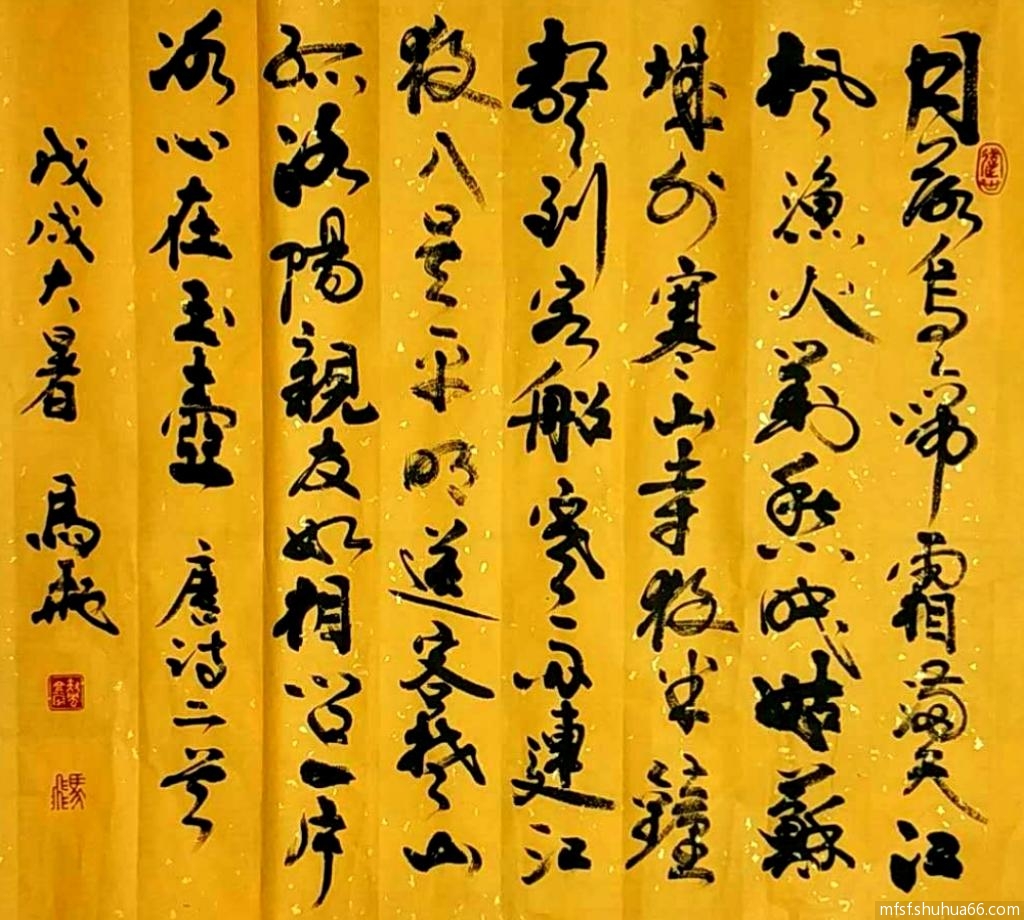 月落烏啼霜滿天江
枫漁火對愁眠姑蘇
城外寒山寺夜半鐘
聲到客船寒雨連江
夜入吴平明送客楚山
孤洛陽親友如相問一片
冰心在玉壺 唐詩二首
戊戌大暑 馬飛
mfsf.shuhua66.com